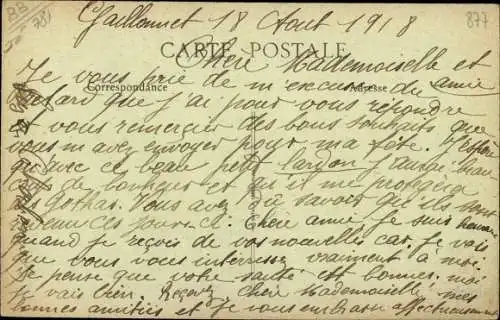 Gaillonnet 18 Aout 1918
877
CARTE POSTALE
Chère Mademoiselle et
amie
Correspondance
Adresse
Je vous prie de m'excuser du
retard que j'ai pour vous répondre
et vous remercier des bons souhaits que
vous m'avez envoyer pour ma fête. J'espère
qu'avec ce beau petit lardon j'aurai beau
de bonheur et qu'il me protégera
des gothas. Vous avez dû savoir qu'ils sont
revenu ces jours-ci. Chère amie je suis heureuse
quand je reçois de vos nouvelles car je vois
que vous vous intéressez vraiment à moi.
Je pense que votre santé est bonne, moi
je vais bien. Recevez chère Mademoiselle mes
bonnes amitiés et je vous embrasse affectueusement